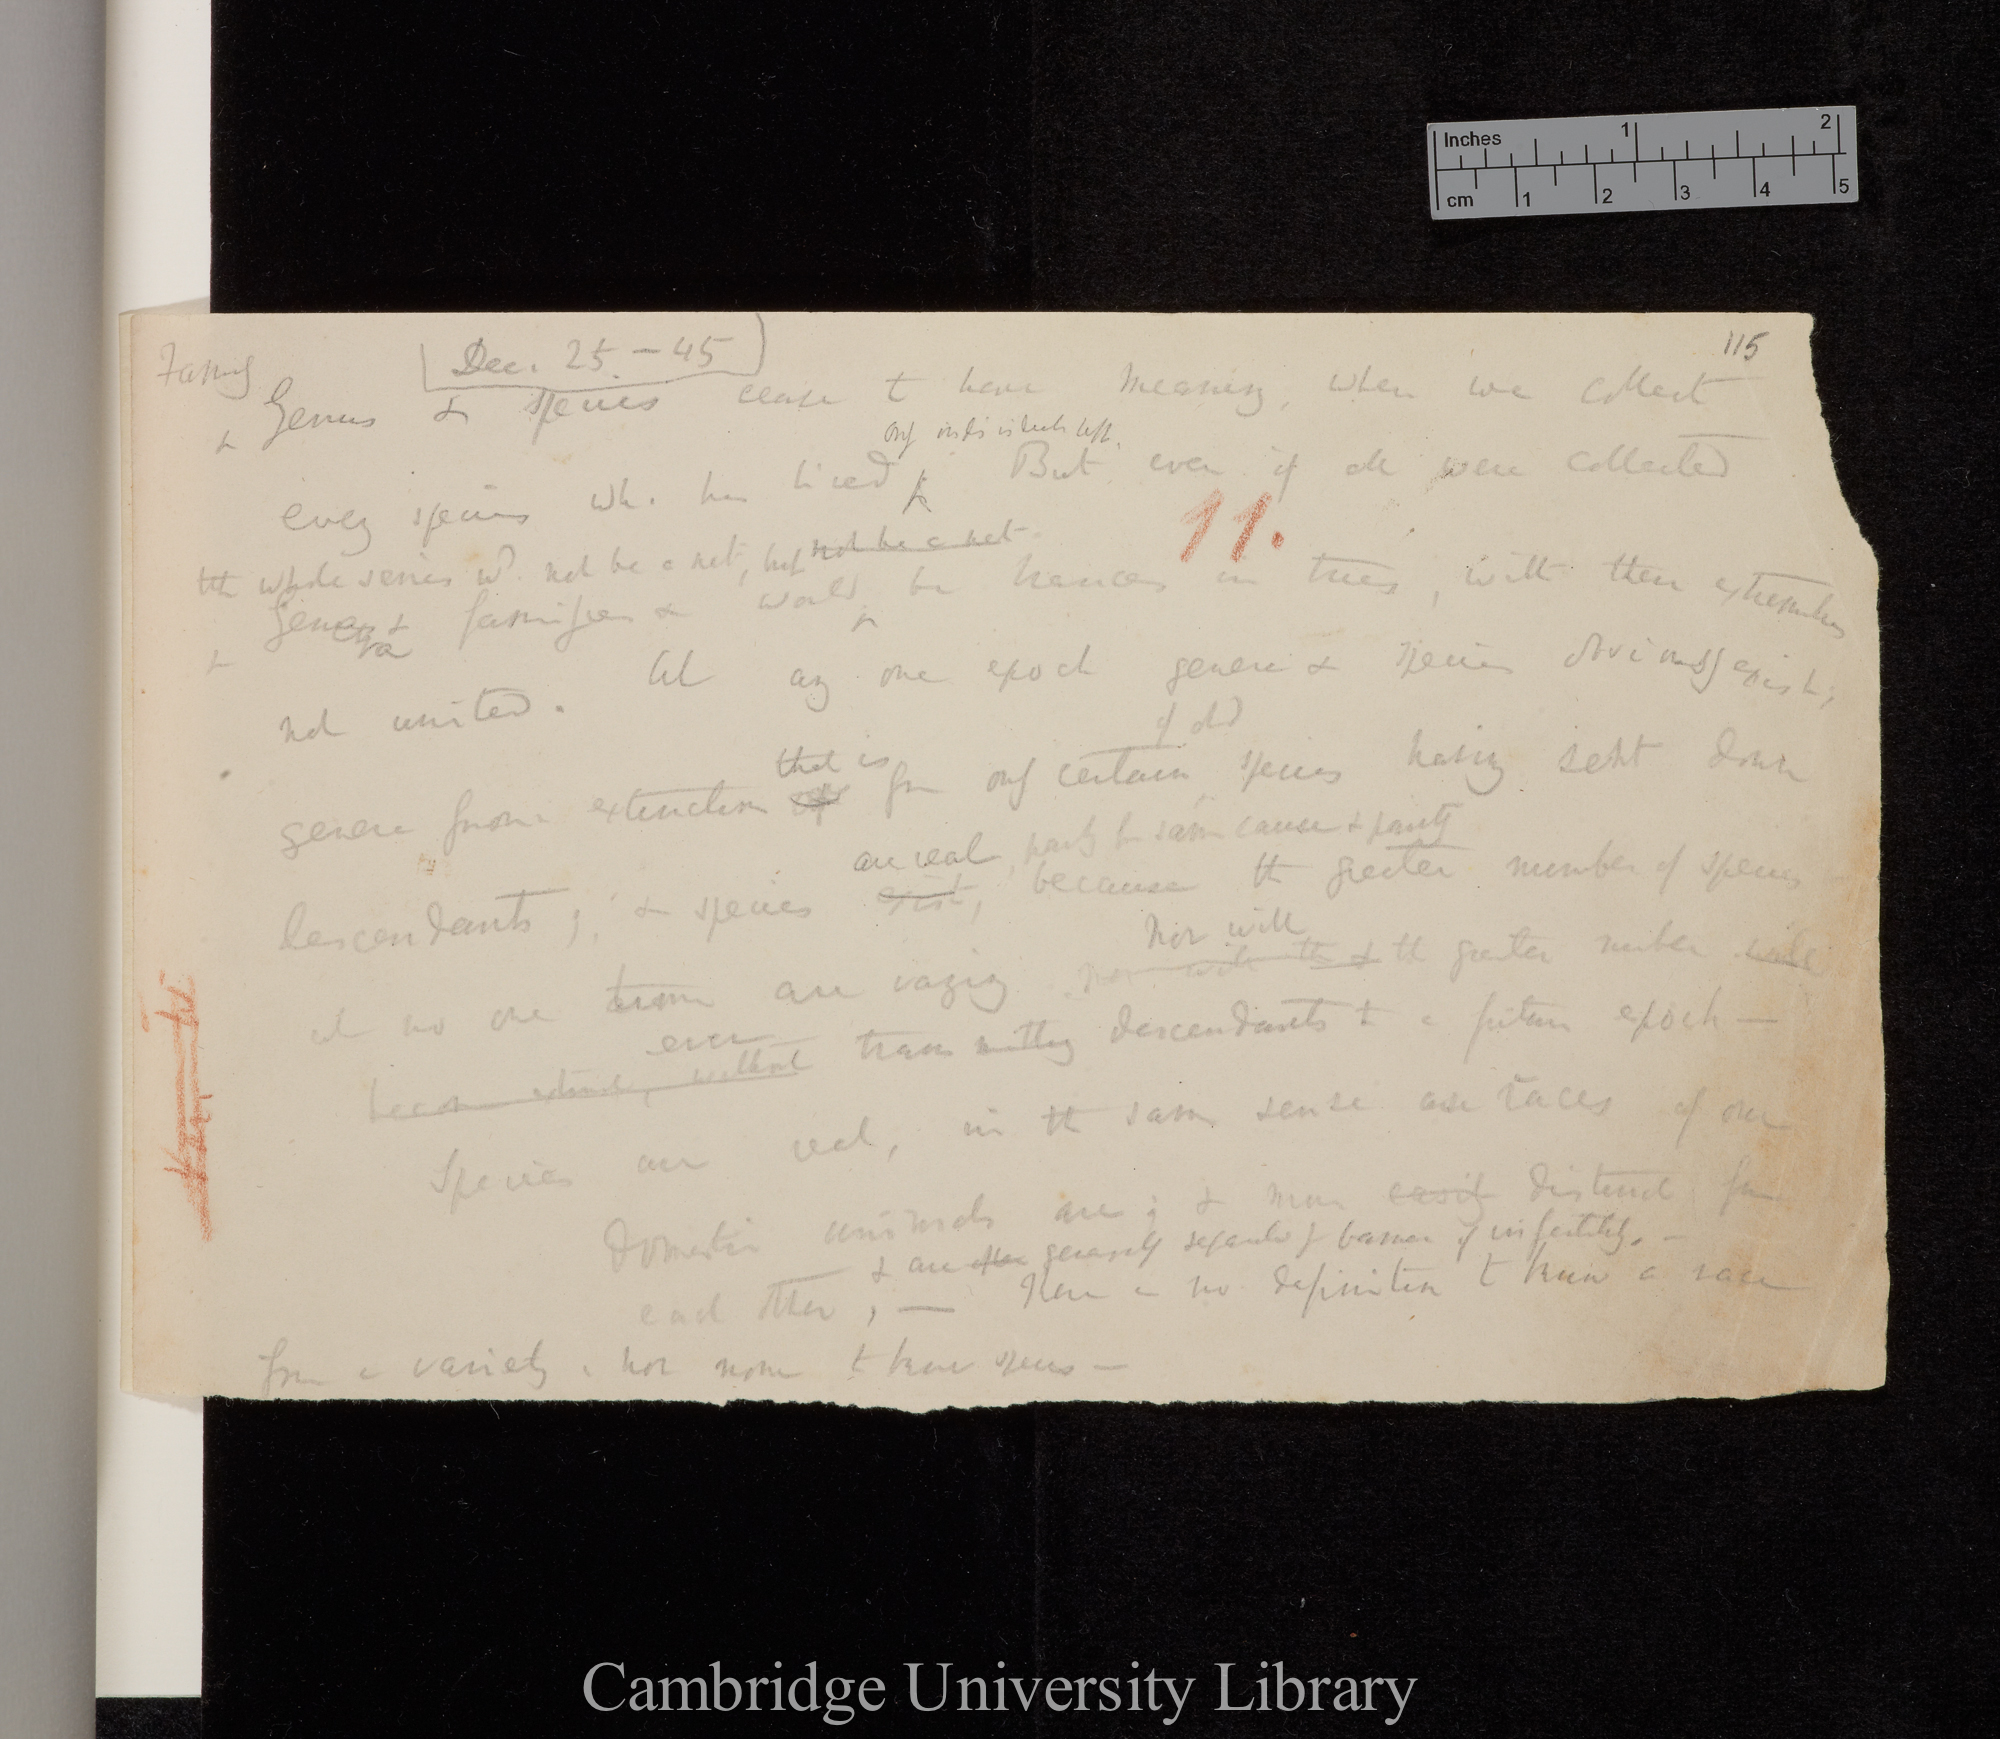 115
Family
Dec. 25. – 45
& Genus & species cease to have meaning, when we collect
only individuals left.
every species wh. has lived. But even if all were collected
the whole series wd. not be a net, but not be a net.
Genera & families & would be branches in trees, with their extremities
not united. At any one epoch genera & species obviously exist;
of old
that is
genera from extinction from only certain species having sent down
are real, partly from same cause & partly
descendants; & species exist, because the greater number of species
Nor will
at no one time are varying & the greater number
ever
become extinct, without transmitting descendants to a future epoch —
Species are real, in the same sense as races of our
domestic animals are; & more easily distinct from
& are often generally separated by barrier of infertility. —
each other, — Have no definition to know a race
from a variety nor more to know species —
11.
Inches
1
2
cm
1
2
3
4
5
Cambridge University Library